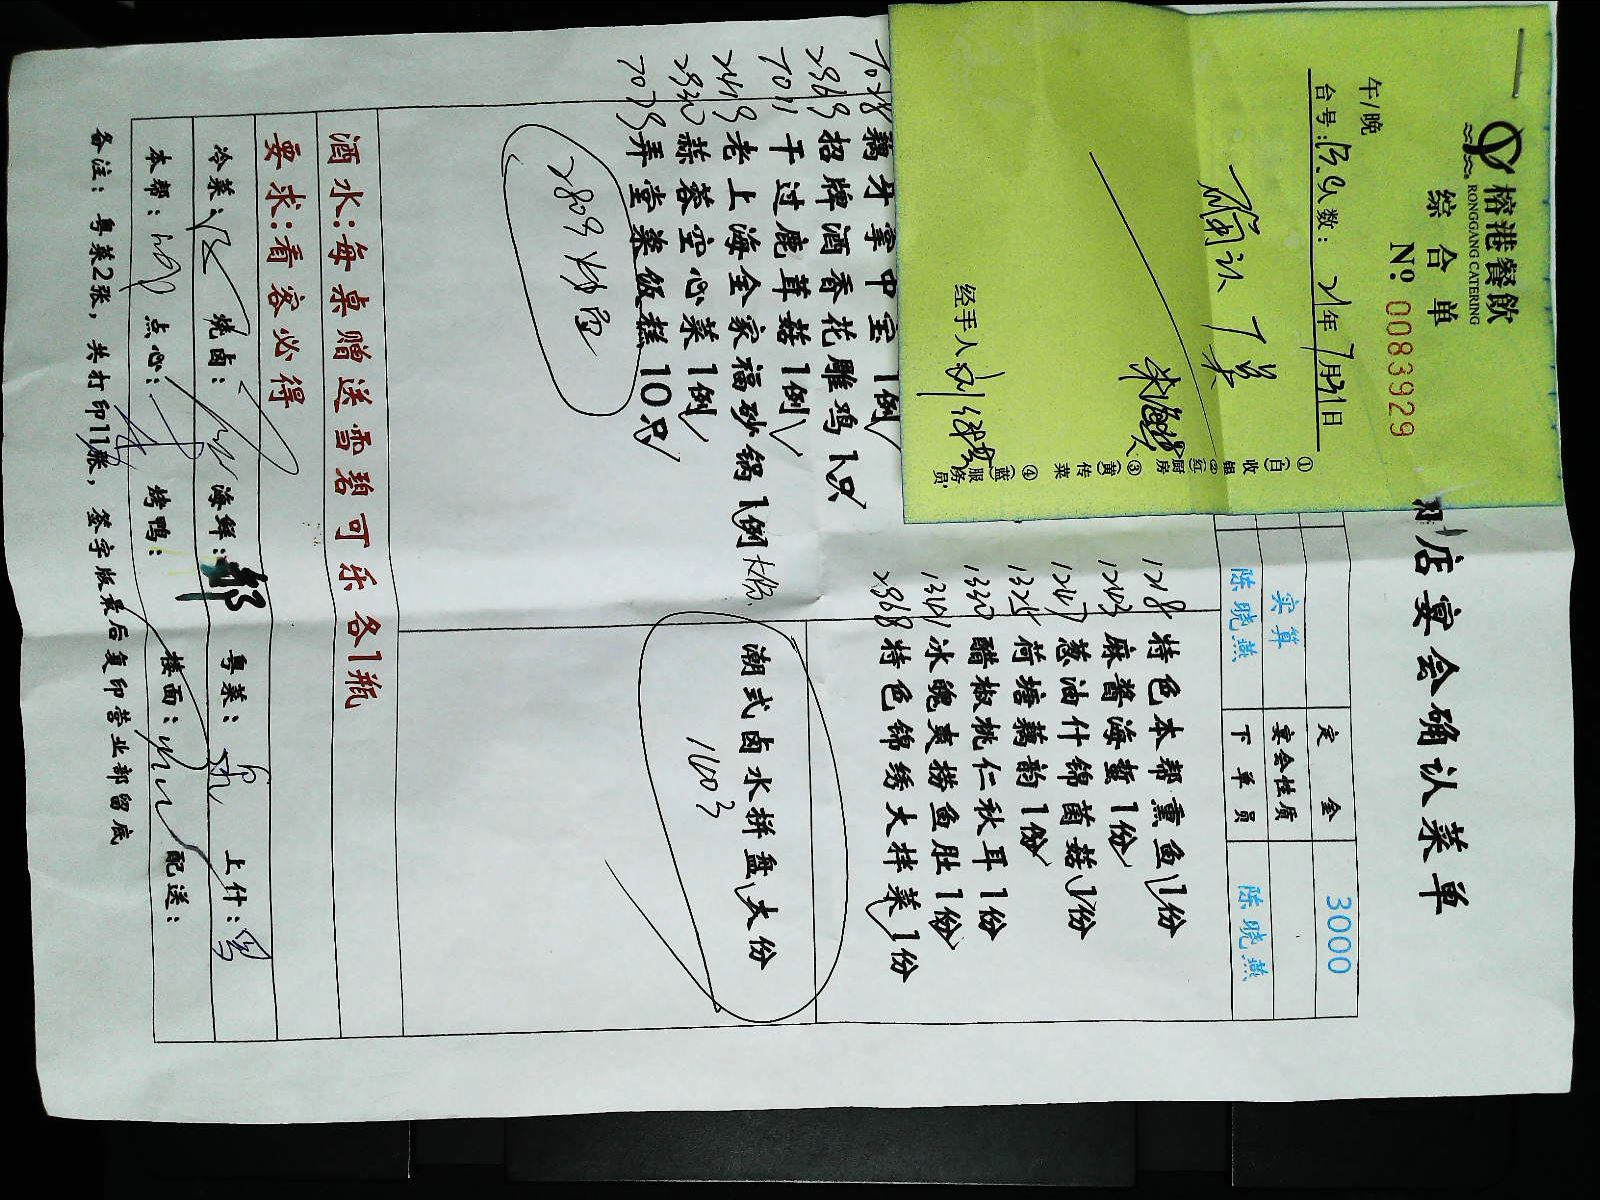 榕港餐飲
RONGGANG CATERING
综合单
№ 0083929
午/晚
台号: 人数: 21年7月31日
确认 下单
经手人
①(白)收银
②(红)厨房
③(黄)传菜
④(蓝)服务员
店宴会确认菜单
定金 3000
实算 宴会性质
陈晓燕 下单员 陈晓燕
1218 特色本帮熏鱼1份
1243 麻酱海蜇1份
1247 葱油什锦菌菇1份
1325 荷塘藕韵1份
1330 醋椒桃仁秋耳1份
1341 冰魄爽捞鱼肚1份
2868 特色锦绣大拌菜1份
潮式卤水拼盘1大份
1603
7028 藕牙掌中宝1例
2969 招牌酒香花雕鸡1只
7011 干过鹿茸菇1例
2419 老上海全家福砂锅1例 大份
2930 蒜蓉空心菜1例
7073 弄堂粢饭糕10只
2809
酒水:每桌赠送雪碧可乐各1瓶
要求:看客必得
冷菜: 烧卤: 海鲜: 粤菜: 上什:
本帮: 点心: 烤鸭: 楼面: 配送:
备注: 粤菜2张, 共打印11张, 签字版最后复印营业部留底